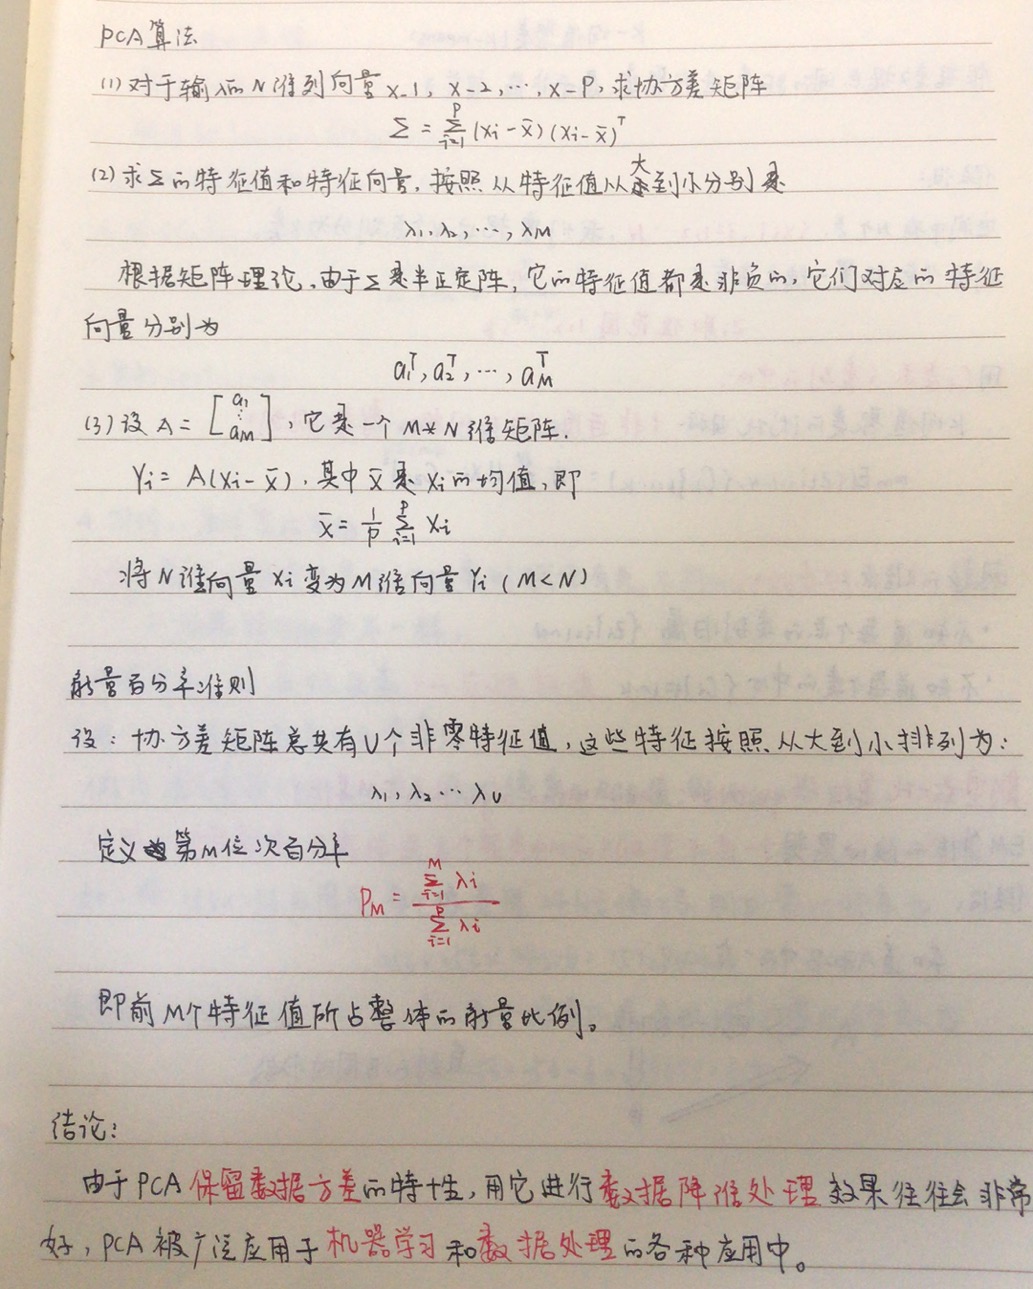 PCA算法
(1)对于输入的N维列向量x-1, x-2, ..., x-P, 求协方差矩阵
Σ = Σ_{i=1}^{P} (xi-x̄)(xi-x̄)^T
(2)求Σ的特征值和特征向量, 按照从特征值从大到小分别是
λ1, λ2, ..., λM
根据矩阵理论, 由于Σ是半正定阵, 它的特征值都是非负的, 它们对应的特征
向量分别为
a1^T, a2^T, ..., aM^T
(3)设A = [a1 ⋮ aM], 它是一个M*N维矩阵.
Yi = A(Xi-x̄), 其中x̄是Xi的均值, 即
x̄ = 1/P Σ_{i=1}^{P} Xi
将N维向量Xi变为M维向量Yi (M<N)
能量百分率准则
设: 协方差矩阵总共有U个非零特征值, 这些特征按照从大到小排列为:
λ1, λ2 ... λU
定义第M位次百分率
PM = Σ_{i=1}^{M} λi / Σ_{i=1}^{P} λi
即前M个特征值所占整体的能量比例。
结论:
由于PCA保留数据方差的特性, 用它进行数据降维处理效果往往会非常
好, PCA被广泛应用于机器学习和数据处理的各种应用中。